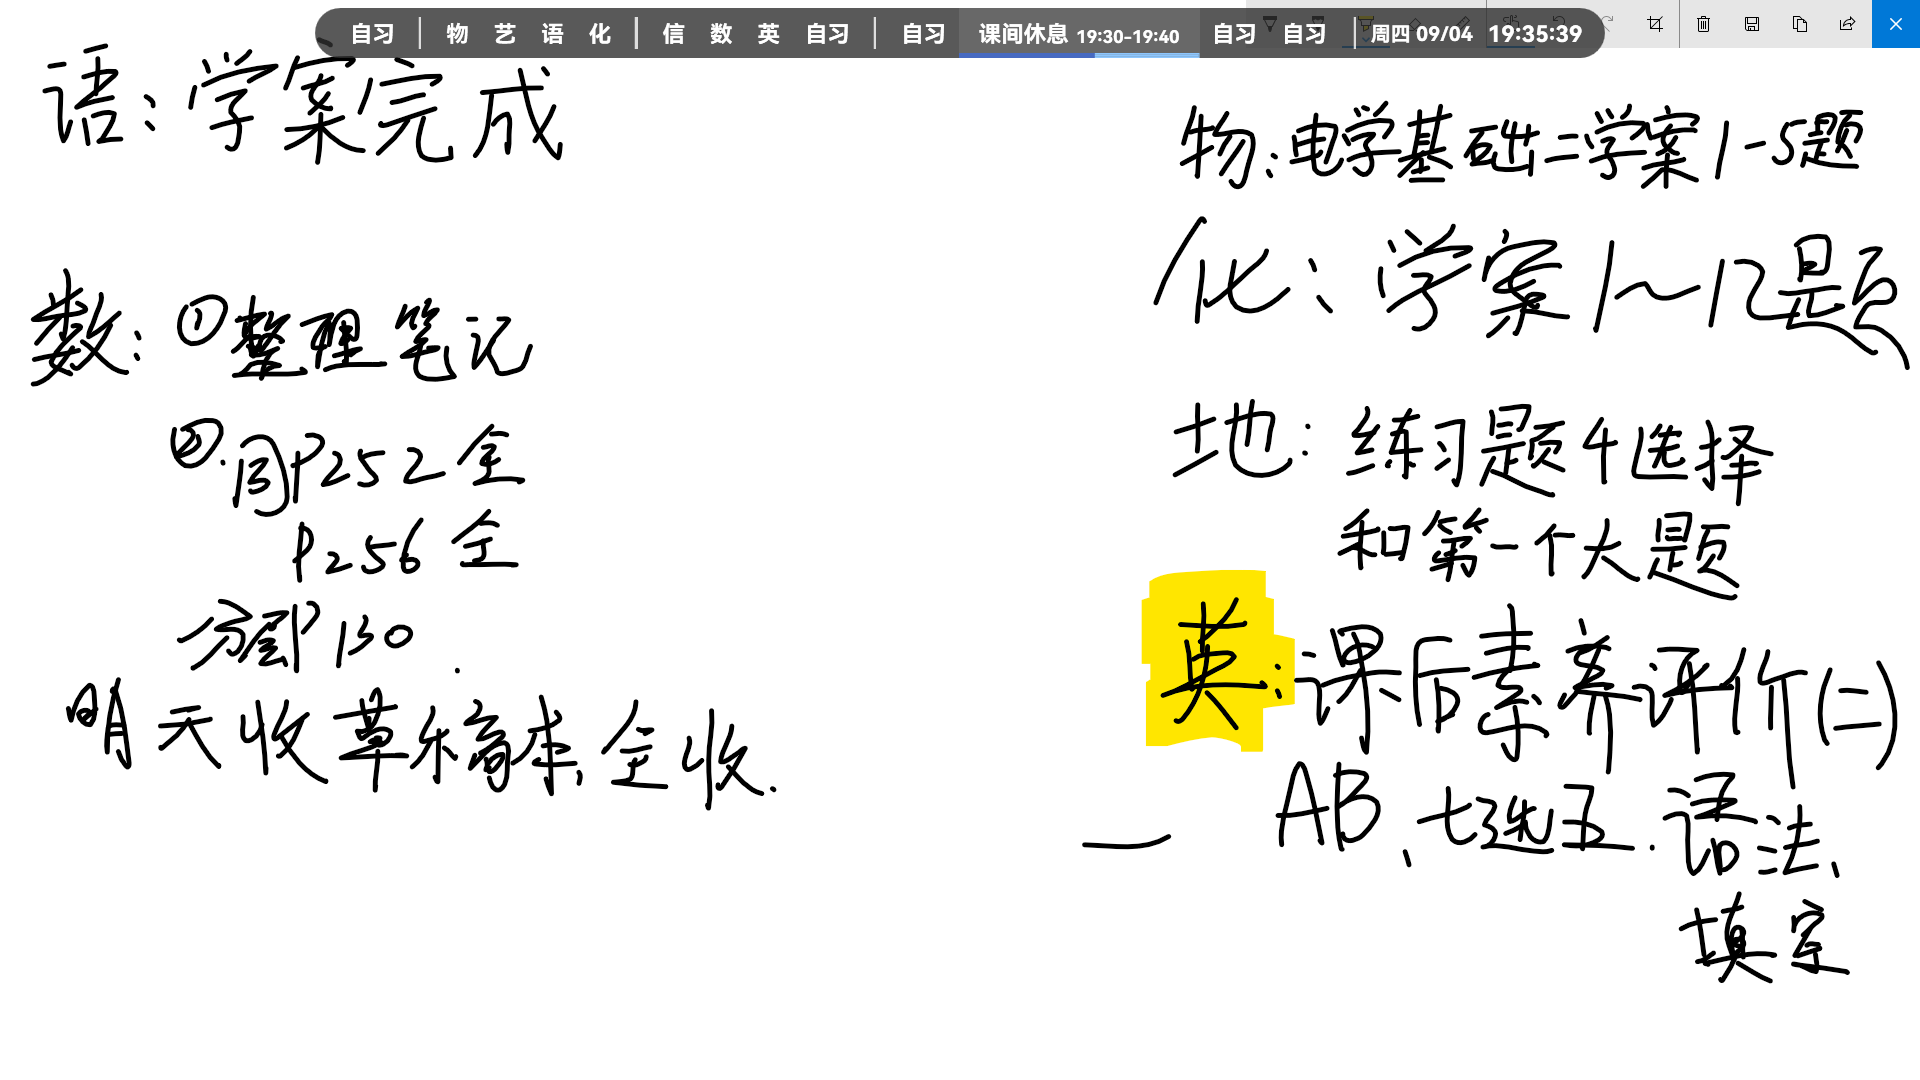 自习 | 物 艺 语 化 | 信 数 英 自习 | 自习 课间休息 19:30-19:40 自习 自习 | 周四 09/04 19:35:39
语：学案完成
数：①整理笔记
②.同P252全
P256全
分层P130.
明天收草稿本,全收.
物：电学基础二学案1-5题
化：学案1~12题
地：练习题4选择
和第一个大题
英：课后素养评价(二)
AB、七选五.语法、
填空